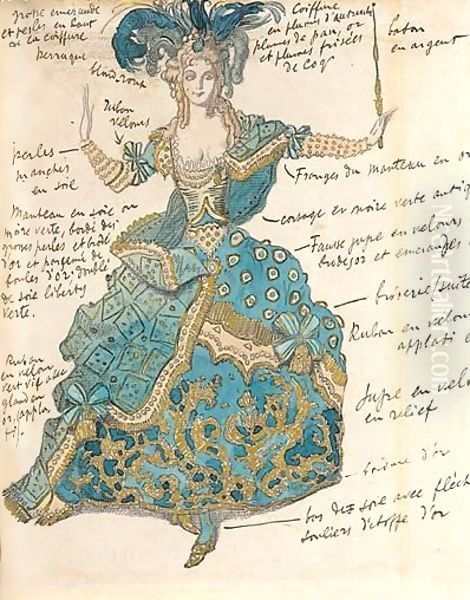 grosse emeraude
et perles en haut
de la coiffure
perruque
blond roux
Coiffure
en plumes d'autruche
plumes de paon, or
et plumes frisées
de coq
baton
en argent
Ruban
velours
perles
manches
en soie
Franges du manteau en or
corsage en moire verte
Manteau en soie ou
moire verte, bordé des
grosses perles et brodé
d'or et parsemé de
boules d'or. doublé
de soie liberty
verte.
Fausse jupe en velours
brodé d'or et emeraudes
Ruban en velours
Ruban
en velours
vert vif avec
gland en
or
Jupe en velours
en relief
bordure d'or
bas de soie avec
souliers d'étoffe d'or